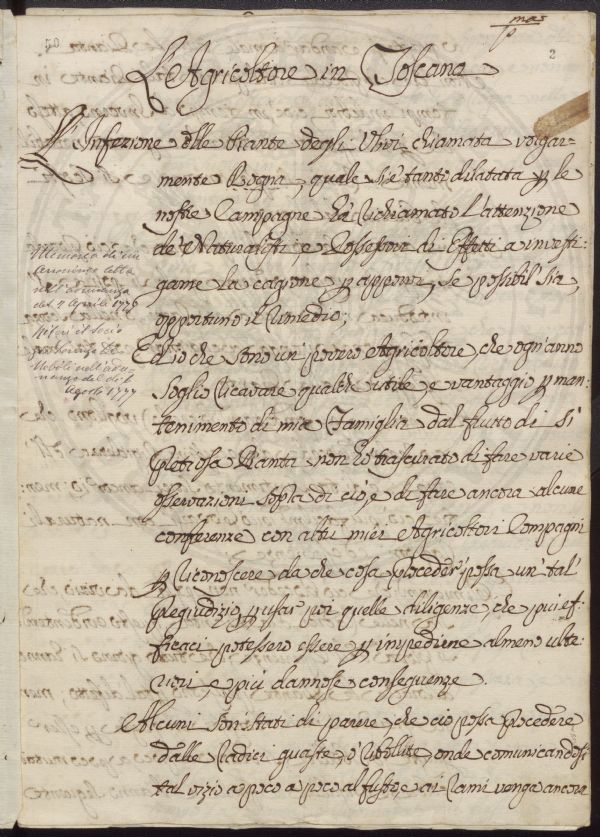 p.mo
2
L'Agricoltore in Toscana
L'Infezione delle Piante degli Ulivi, chiamata volgar-
mente Rogna, quale si è tanto dilatata p le
nostre Campagne hà richiamato l'attenzione
de' Naturalisti, e Possessori di Effetti a investi-
garne la cagione p apporvi, se possibil sia,
opportuno il rimedio;
Memoria di un
anonimo letta
nell'adunanza
del 7 Aprile 1776
Rifer: il Socio
Nobili nell'adu-
nanza del dì
Agosto 1777
Ed io che sono un povero Agricoltore, che ogn'anno
soglio ricavare qualche utile, e vantaggio p man-
tenimento di mia Famiglia dal frutto di sì
preziosa Pianta non hò trascurato di fare varie
osservazioni sopra di ciò, e di fare ancora alcune
conferenze con altri miei Agricoltori Compagni
p riconoscere da che cosa proceder possa un tal
pregiudizio, p usar poi quelle diligenze, che più ef-
ficaci potessero essere p impedirne almeno ulte-
riori, e più dannose conseguenze.
Alcuni son stati di parere, che ciò possa procedere
dalle radici guaste, o ribollite, onde comunicandosi
tal vizio a poco a poco al fusto, e ai rami venga ancora